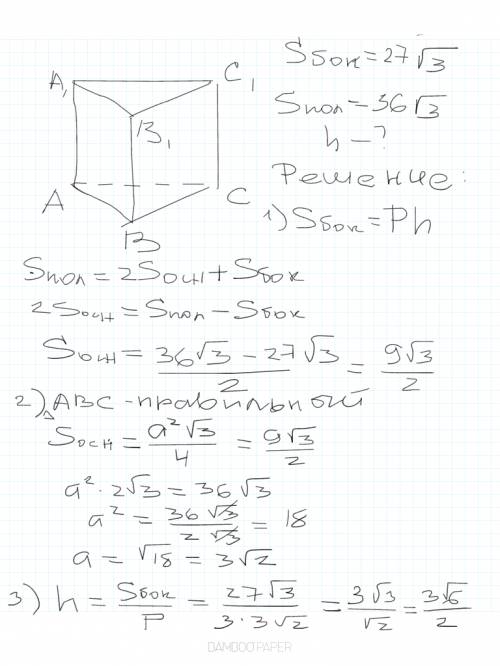 Sбок = 27√3
Sпол = 36√3
h — ?
Решение:
A₁ C₁
B₁
A C
B
1) Sбок = Ph
Sпол = 2Sосн + Sбок
2Sосн = Sпол − Sбок
Sосн = (36√3 − 27√3)/2 = 9√3/2
2) △ABC - правильный
Sосн = a²√3/4 = 9√3/2
a² · 2√3 = 36√3
a² = 36√3/2√3 = 18
a = √18 = 3√2
3) h = Sбок/P = 27√3/(3·3√2) = 3√3/√2 = 3√6/2
BAMBOO PAPER